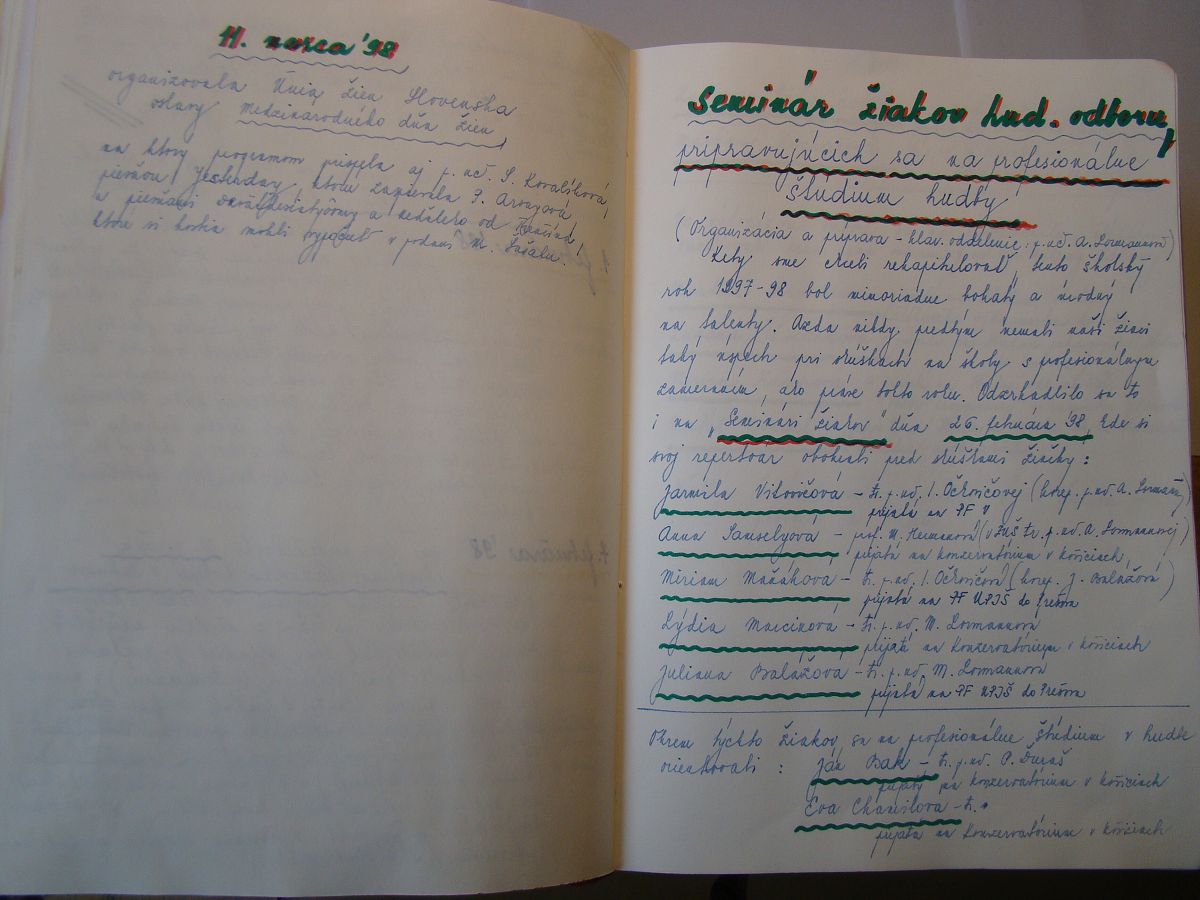 11. marca '98
organizovala Únia žien Slovenska
oslavy Medzinárodného dňa žien,
na ktorý programom prispela aj p. uč. S. Kovalíková,
piesňou Yesterday, ktorú zaspievala
a piesňami a neďaleko od
ktoré si hostia mohli vypočuť v podaní M.
Seminár žiakov hud. odboru,
pripravujúcich sa na profesionálne
štúdium hudby
(Organizácia a príprava - klav. oddelenie: p. uč. A. Lormannová)
Keby sme chceli rekapitulovať, tento školský
rok 1997-98 bol mimoriadne bohatý a úrodný
na talenty. Azda nikdy predtým nemali naši žiaci
taký úspech pri skúškach na školy s profesionálnym
zameraním, ako práve tohto roku. Odzrkadlilo sa to
i na "Seminári žiakov" dňa 26. februára '98, kde si
svoj repertoár obohrali pred skúškami žiačky:
Jarmila Vitovičová - tr. p. uč. I. Očkovičovej (korep. p. uč. A. Lormann)
prijatá na PF V
Anna - prof. M. Hermanová (v ZUŠ tr. p. uč. A. Lormannovej)
prijatá na konzervatórium v Košiciach,
Miriam Maňáková - tr. p. uč. I. Očkovičová (korep. J. Balážová)
prijatá na PF UPJŠ do Prešova
Lýdia Marcinová - tr. p. uč. M. Lormannová
prijatá na Konzervatórium v Košiciach
Juliana Balážová - tr. p. uč. M. Lormannová
prijatá na PF UPJŠ do Prešova
Okrem týchto žiakov sa na profesionálne štúdium v hudbe
orientovali : Ján Bak - tr. p. uč. P. Ďuraš
prijatý na konzervatórium v Košiciach
Eva - tr.
prijatá na Konzervatórium v Košiciach